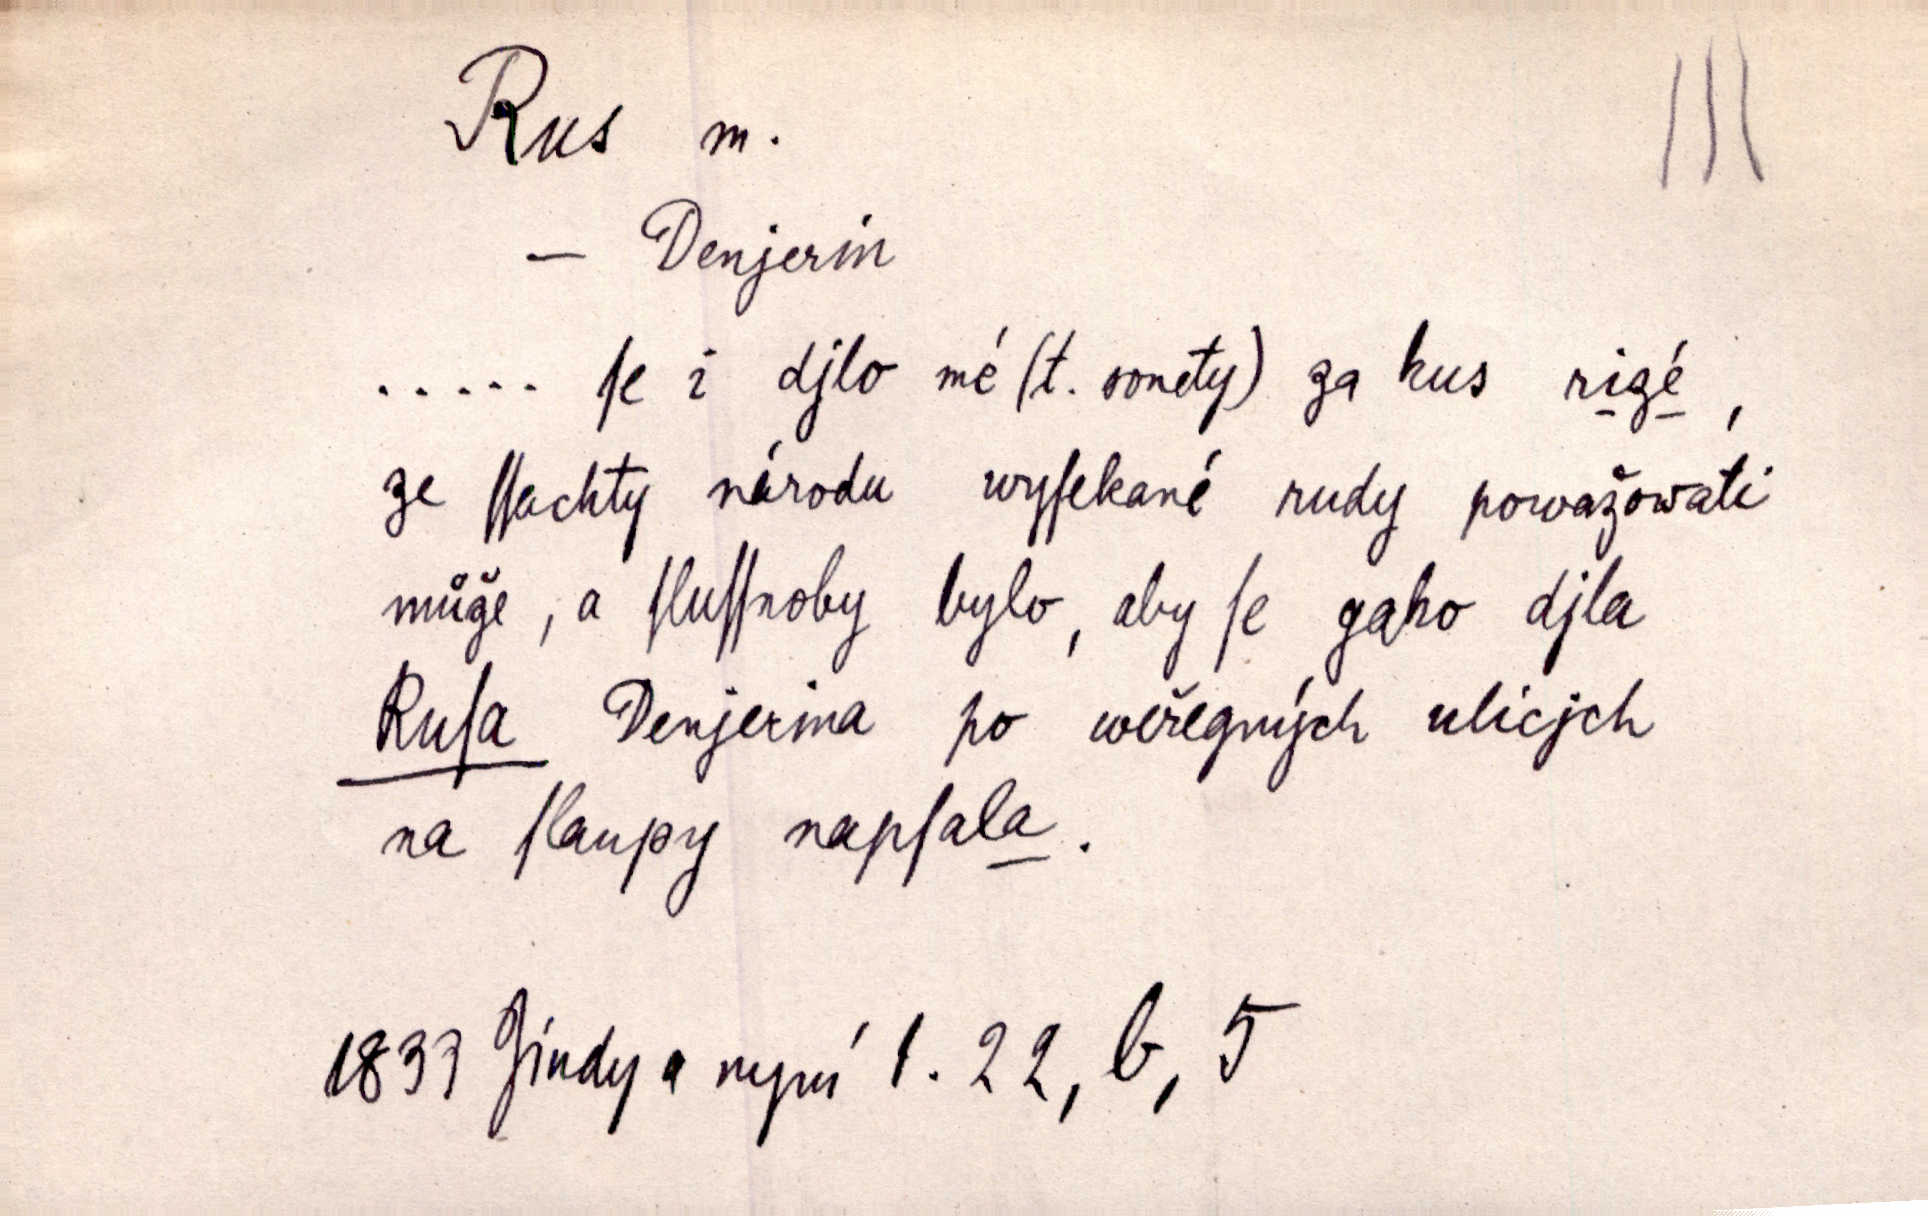 Rus m.
— Denjerin
..... ſe i djlo mé (t. sonety) za kus rizé,
ze ſſachty národu wyſekané rudy powažowati
může, a ſluſſnoby bylo, aby ſe gako djla
Ruſa Denjerina po weřegných ulicjch
na ſlaupy napſala.
1833 Jindy a nyní 1. 22, b, 5